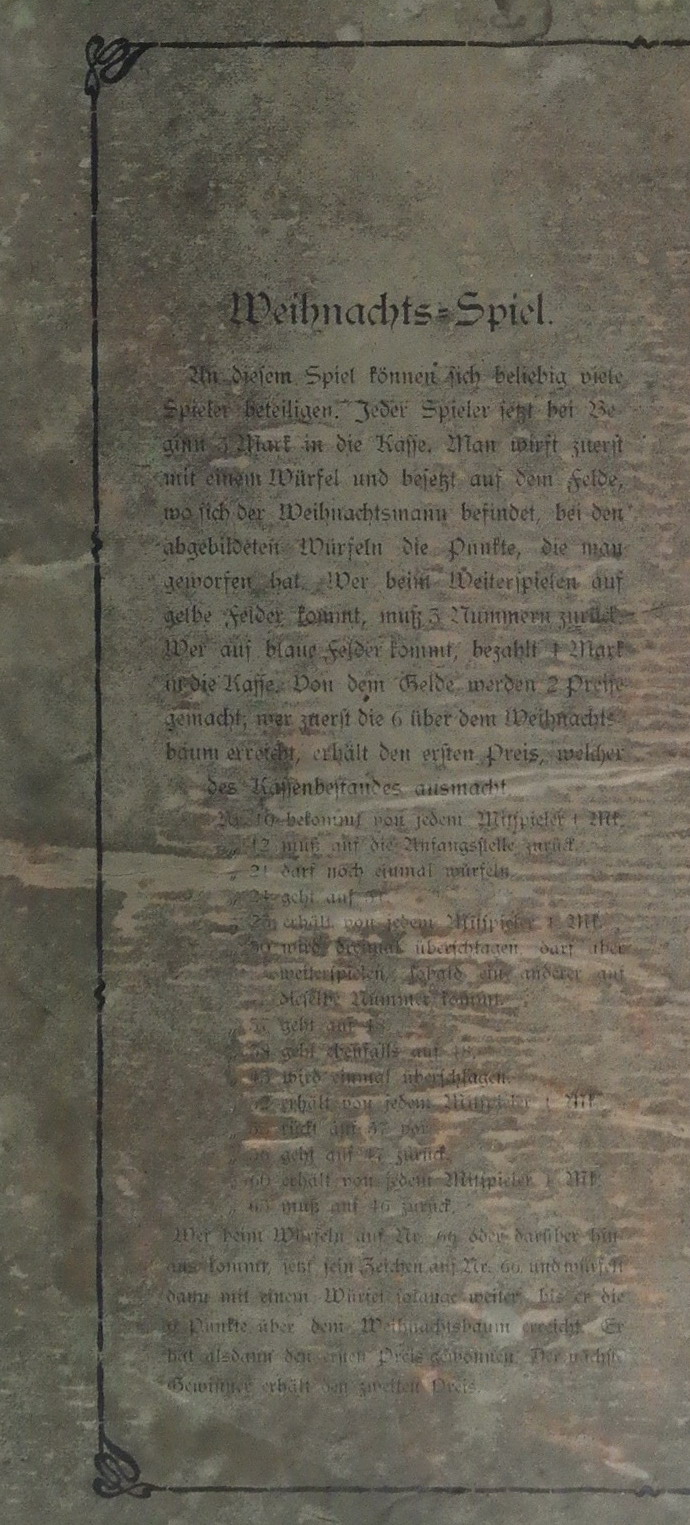 Weihnachts=Spiel.
An diesem Spiel können sich beliebig viele
Spieler beteiligen. Jeder Spieler setzt bei Be-
ginn 3 Mark in die Kasse. Man wirft zuerst
mit einem Würfel und besetzt auf dem Felde,
wo sich der Weihnachtsmann befindet, bei den
abgebildeten Würfeln die Punkte, die man
geworfen hat. Wer beim Weiterspielen auf
gelbe Felder kommt, muß 3 Nummern zurück.
Wer auf blaue Felder kommt, bezahlt 1 Mark
in die Kasse. Von dem Gelde werden 2 Preise
gemacht; wer zuerst die 6 über dem Weihnachts-
baum erreicht, erhält den ersten Preis, welcher
des Kassenbestandes ausmacht.
Nr. 10 bekommt von jedem Mitspieler 1 Mk.
„ 12 muß auf die Anfangsstelle zurück.
„ 21 darf noch einmal würfeln.
„ 24 geht auf
„ erhält von jedem Mitspieler 1 Mk.
„ 30 wird dreimal überschlagen, darf aber
weiterspielen, sobald ein anderer auf
dieselbe Nummer kommt.
„ geht auf
„ geht ebenfalls auf
„ wird einmal überschlagen.
„ erhält von jedem Mitspieler 1 Mk.
„ rückt auf 57 vor.
„ geht auf 47 zurück.
„ 60 erhält von jedem Mitspieler 1 Mk.
„ muß auf 46 zurück.
Wer beim Würfeln auf Nr. 66 oder darüber hin-
aus kommt, setzt sein Zeichen auf Nr. 66 und würfelt
dann mit einem Würfel solange weiter, bis er die
6 Punkte über dem Weihnachtsbaum erreicht. Er
hat alsdann den ersten Preis gewonnen. Der nächste
Gewinner erhält den zweiten Preis.